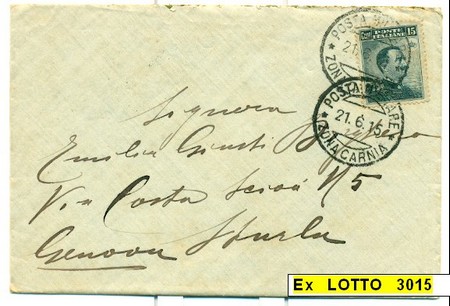 POSTA
21.
ZON
Cent. POSTE 15
ITALIANE
POSTA MILITARE
21.6.15
ZONA CARNIA
Signora
Emilia Giusti
Via Costa N 5
Genova Sturla
Ex LOTTO 3015